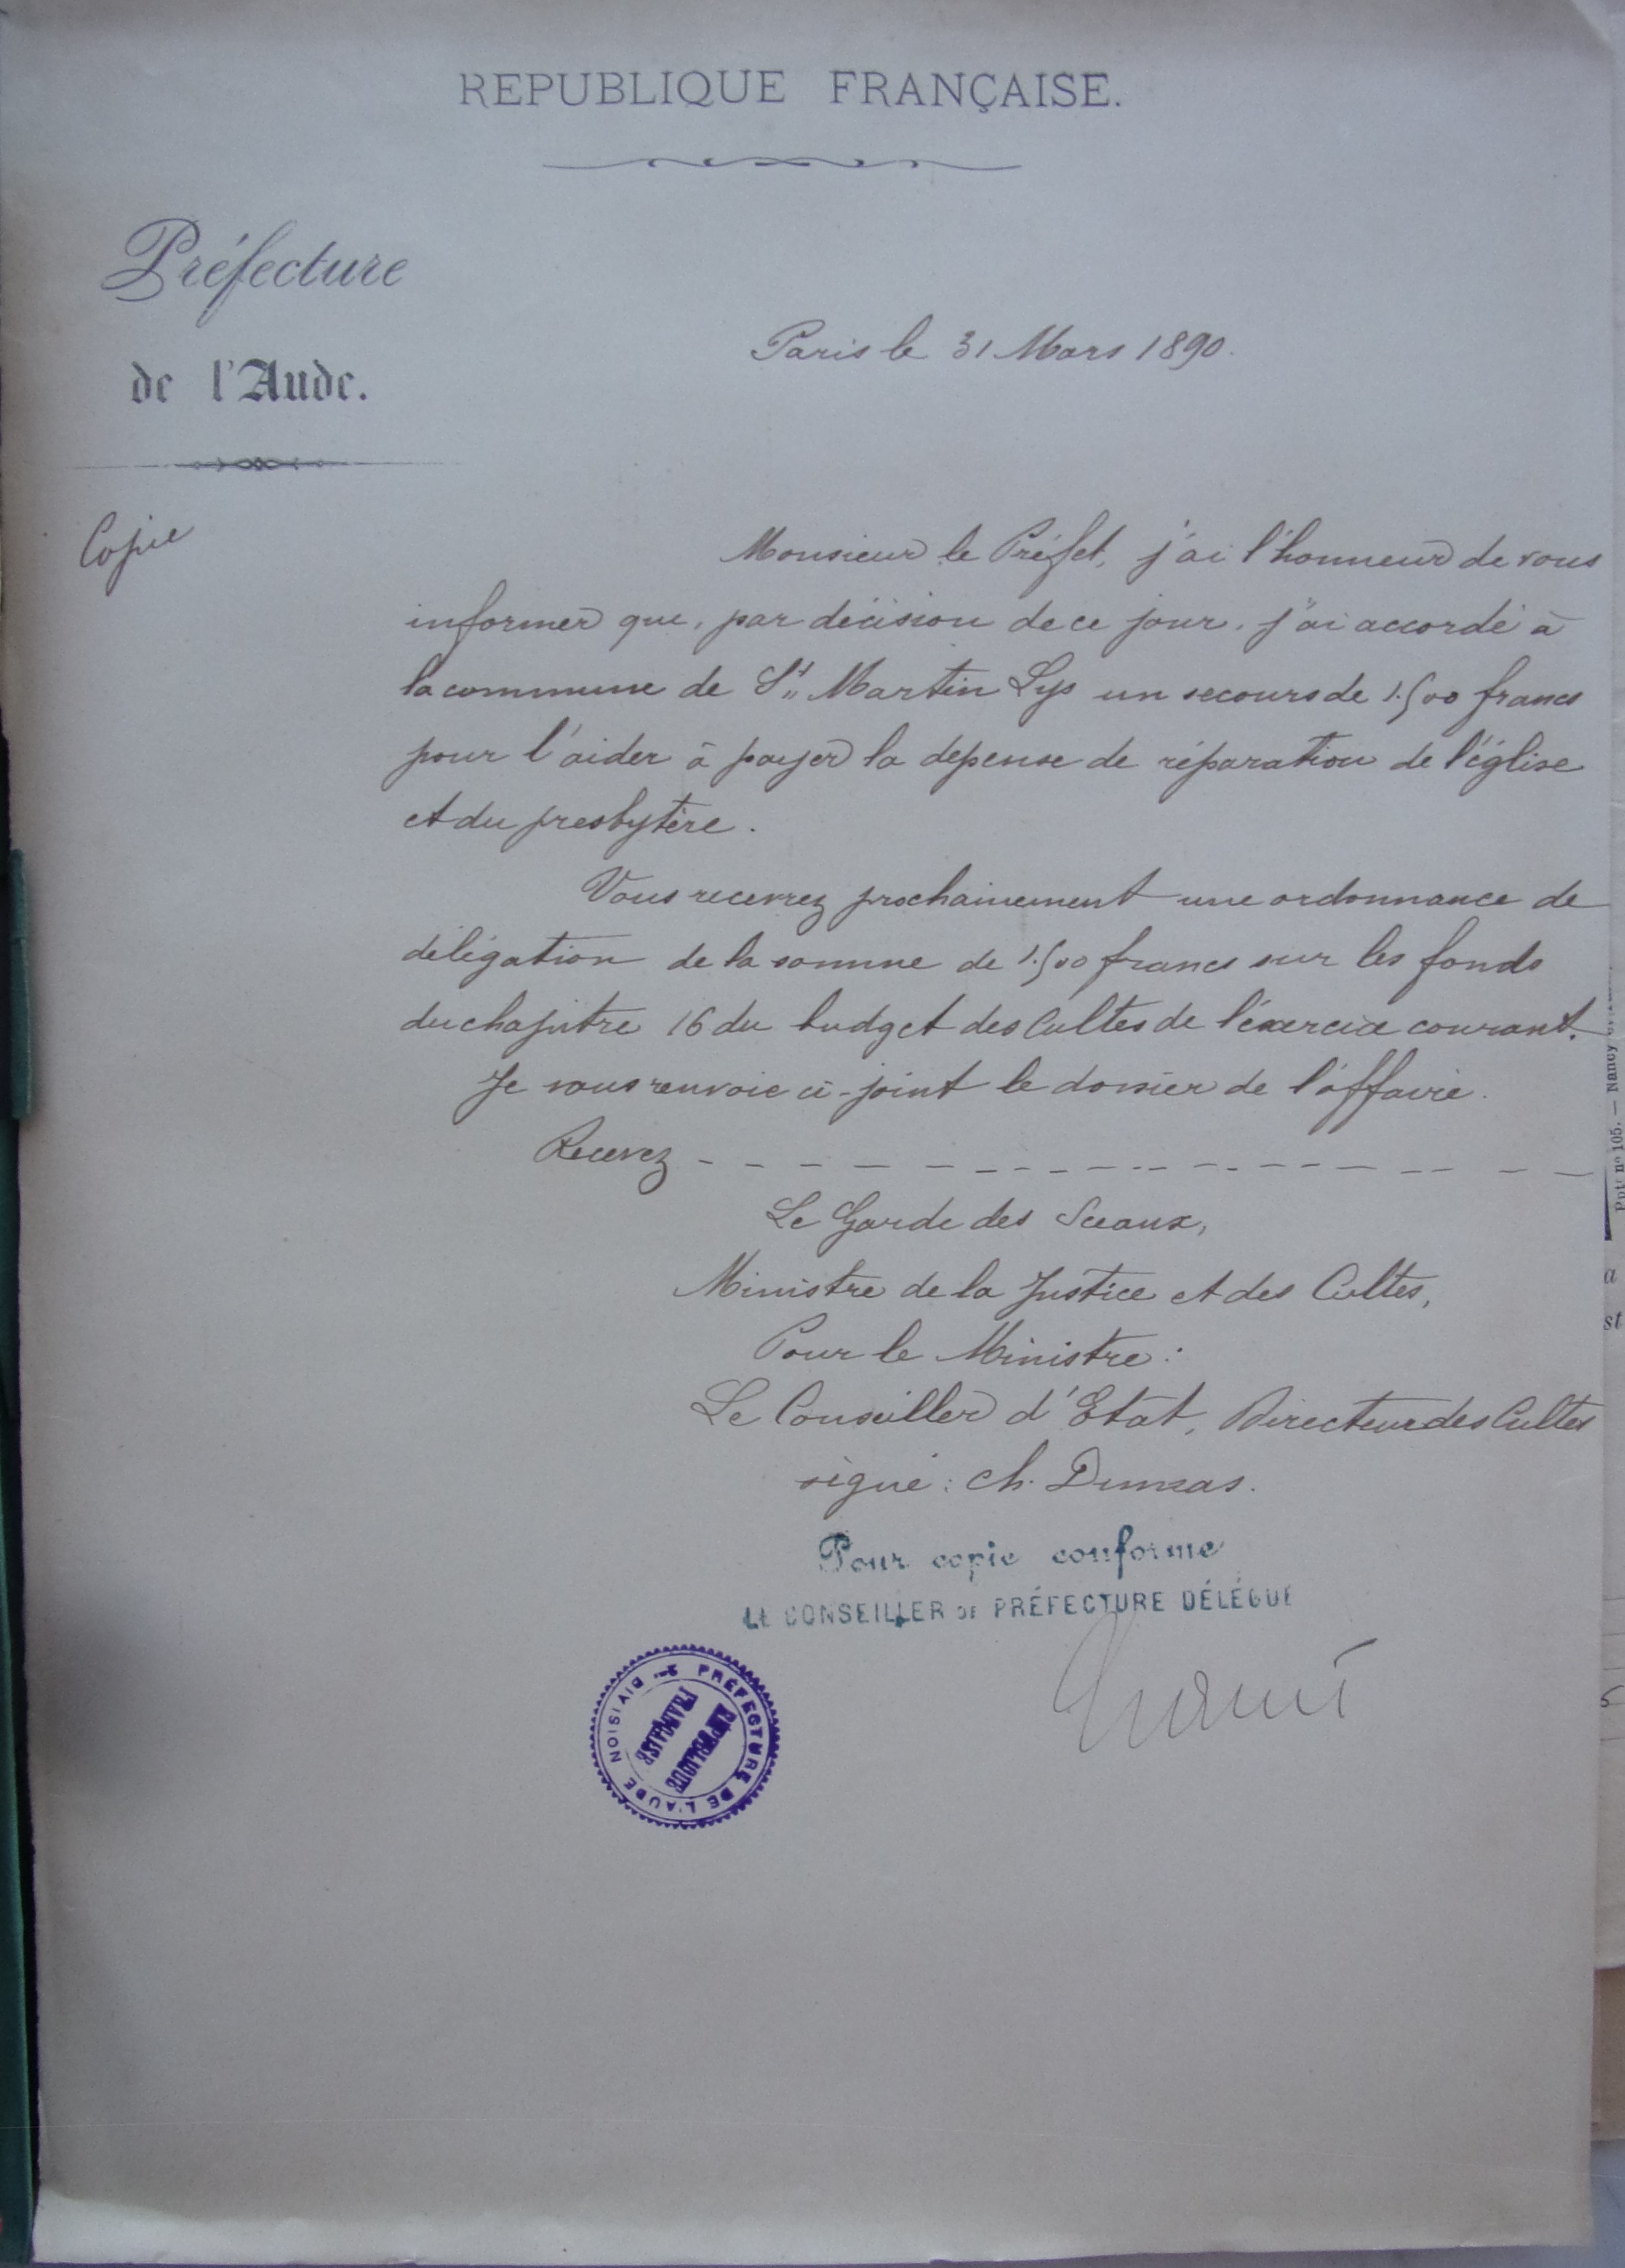 REPUBLIQUE FRANÇAISE.
Préfecture
de l'Aude.
Paris le 31 Mars 1890.
Copie
Monsieur le Préfet, j'ai l'honneur de vous
informer que, par décision de ce jour, j'ai accordé à
la commune de St Martin Lys un secours de 1.500 francs
pour l'aider à payer la dépense de réparation de l'église
et du presbytère.
Vous recevrez prochainement une ordonnance de
délégation de la somme de 1.500 francs sur les fonds
du chapitre 16 du budget des Cultes de l'exercice courant.
Je vous renvoie ci-joint le dossier de l'affaire.
Recevez - - - - - - - - - - - - - - - - -
Le Garde des Sceaux,
Ministre de la Justice et des Cultes,
Pour le Ministre :
Le Conseiller d'Etat, Directeur des Cultes
signé : Ch. Dumas.
Pour copie conforme
LE CONSEILLER DE PRÉFECTURE DÉLÉGUÉ
PRÉFECTURE DE L'AUDE
2e DIVISION
REPUBLIQUE
FRANÇAISE
Nancy
nº 105. —
a
st